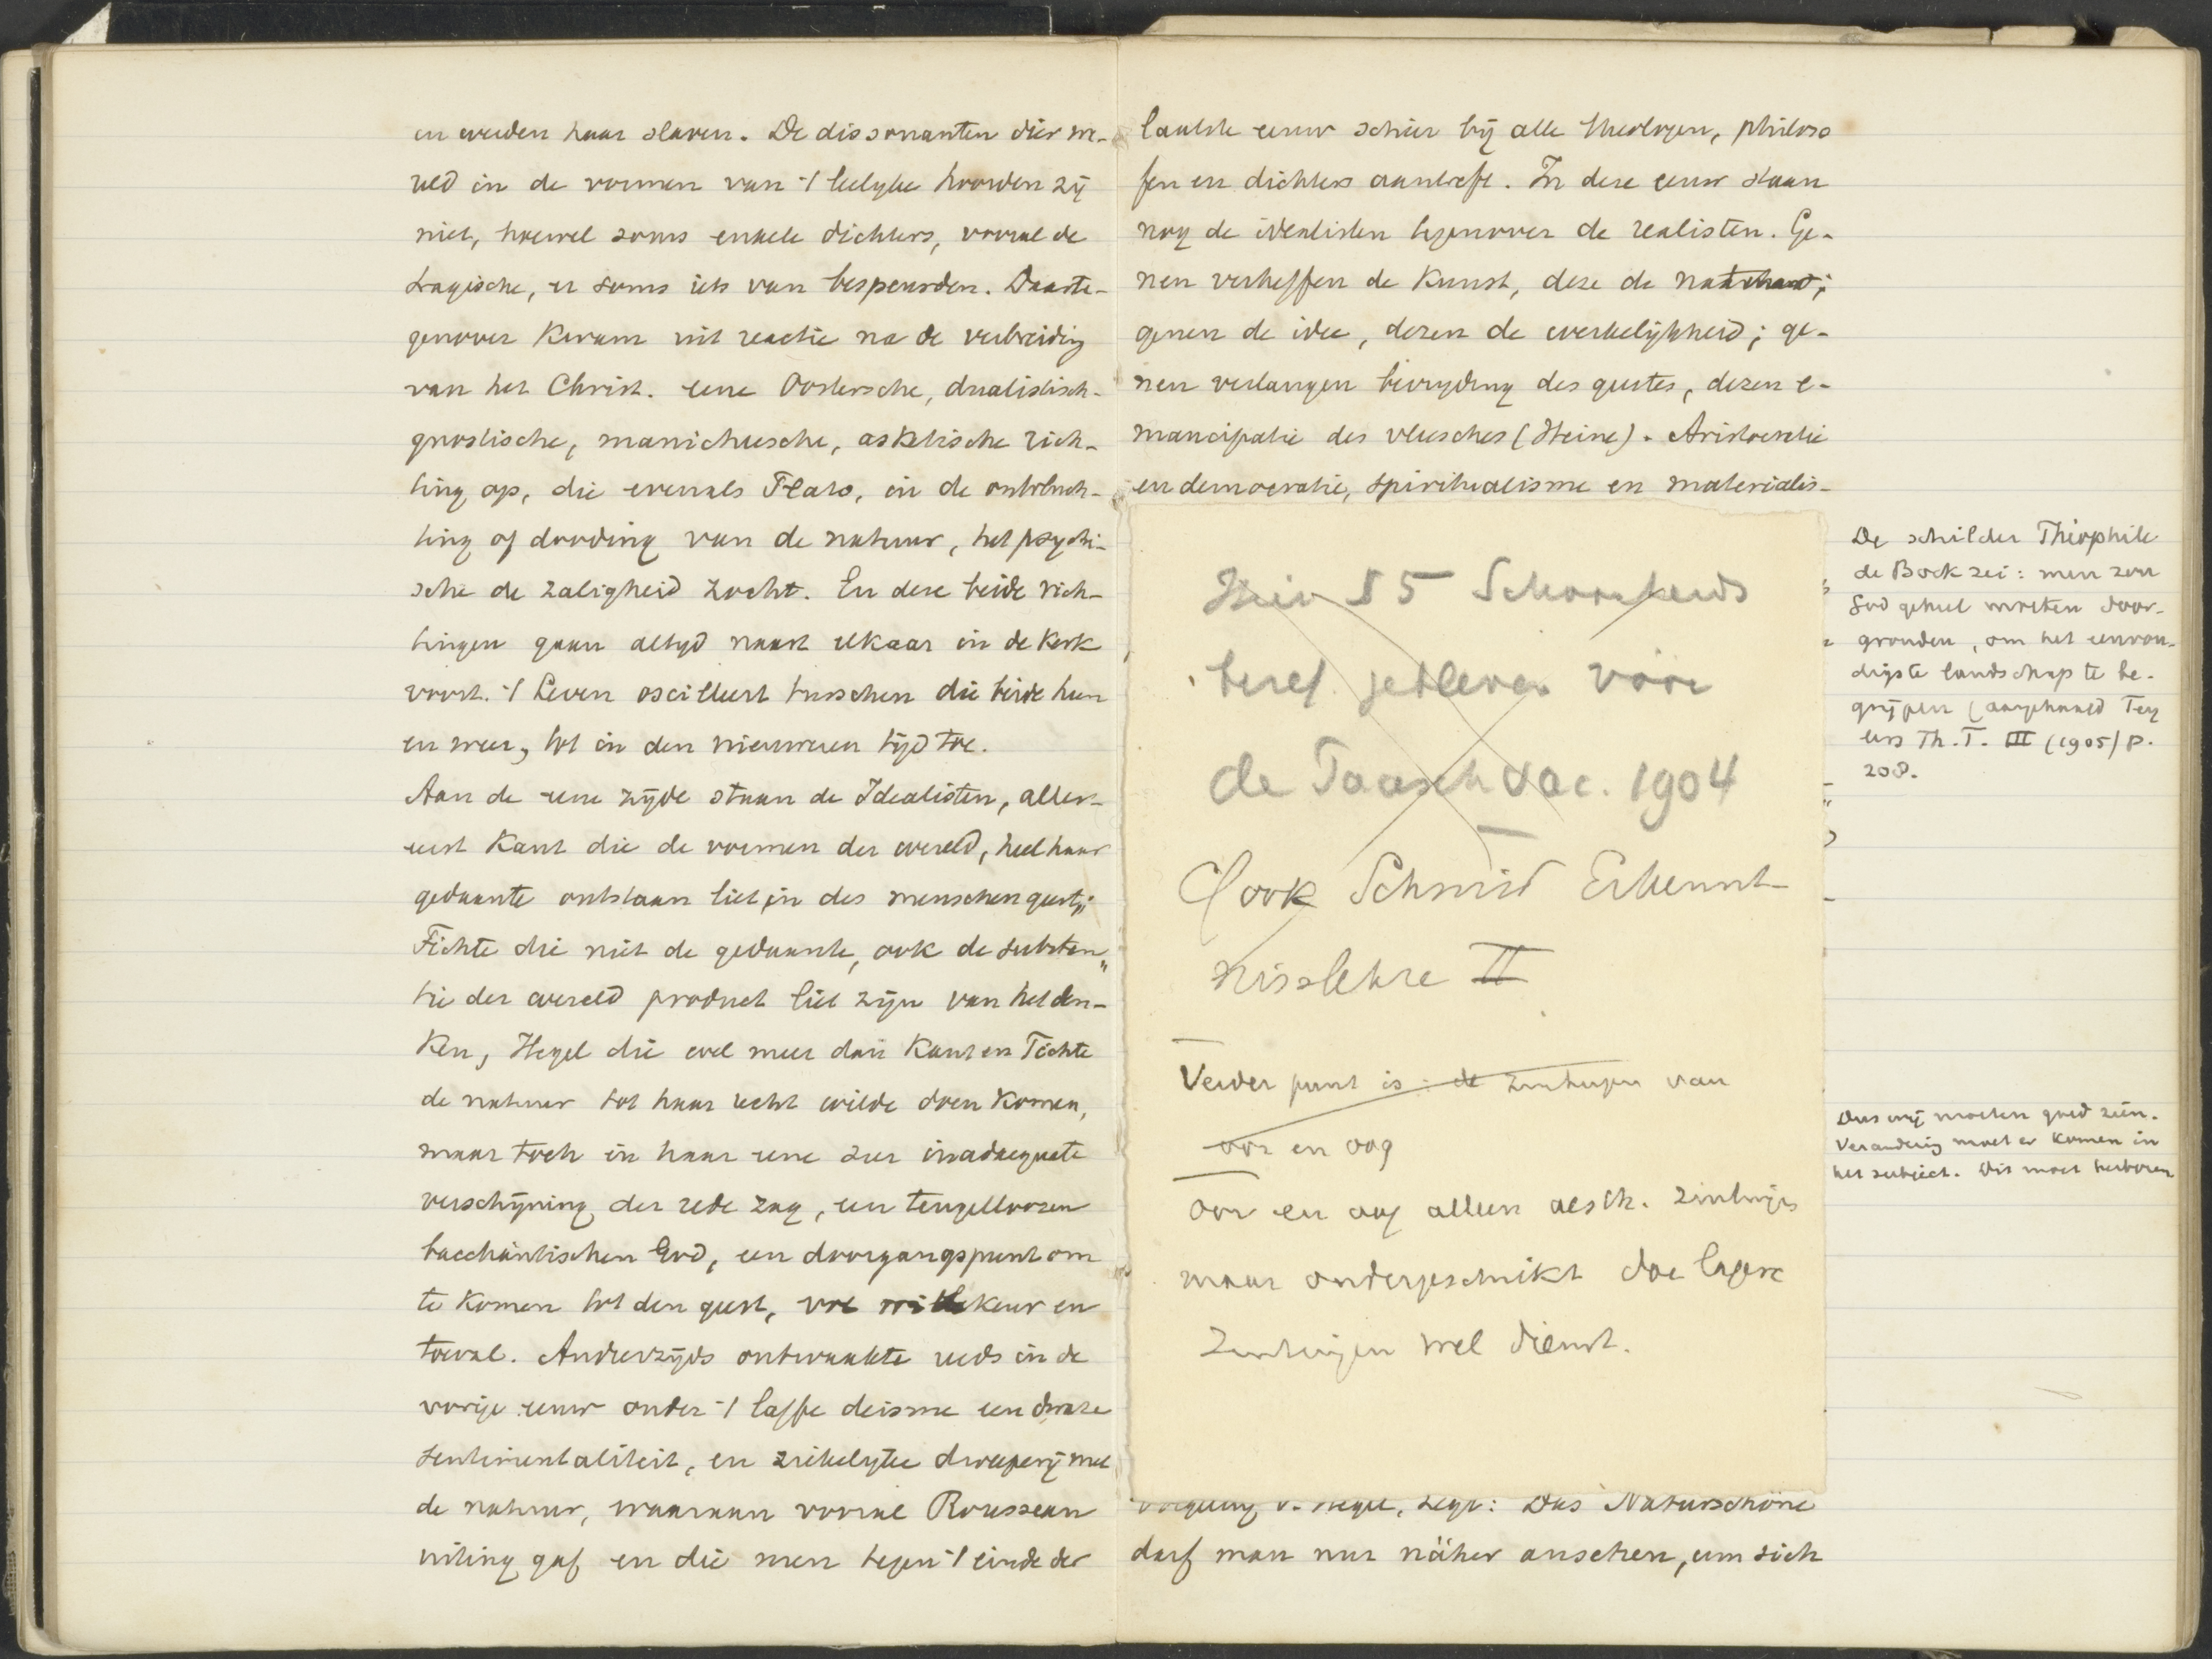 en werden haar slaven. De dissonanten dier we-
reld in de vormen van 't leelyke hoorden zij
niet, hoewel soms enkele dichters, vooral de
tragische, er soms iets van bespeurden. Daarte-
genover kwam uit reactie na de verbreiding
van het Christ. eene Oostersche, dualistisch-
gnostische, manicheesche, asketische rich-
ting op, die evenals Plato, in de ontvluch-
ting of dooding van de natuur, het psychi-
sche de zaligheid zocht. En deze beide rich-
tingen gaan altyd naast elkaar in de kerk
voort. 't Leven oscilleert tusschen die beide heen
en weer, tot in den nieuweren tijd toe.
Aan de eene zijde staan de Idealisten, aller-
eerst Kant die de vormen der wereld, heel haar
gedaante ontstaan liet in des menschen geest;
Fichte die niet de gedaante, ook de substan"
tie der wereld product liet zijn van het den-
ken, Hegel die wel meer dan Kant en Fichte
de natuur tot haar recht wilde doen komen,
maar toch in haar eene zeer inadaequate
verschijning der rede zag, een teugelloozen
bacchantischen God, een doorgangspunt om
te komen tot den geest, vol willekeur en
toeval. Anderzijds ontwaakte reeds in de
vorige eeuw onder 't laffe deisme een dwaze
sentimentaliteit, en ziekelyke dweeperij met
de natuur, waaraan vooral Rousseau
uiting gaf en die men tegen 't einde der
laatste eeuw schier bij alle theologen, philoso
fen en dichters aantreft. In deze eeuw staan
nog de idealisten tegenover de realisten. Ge-
nen verheffen de kunst, deze de
genen de idee, dezen de werkelijkheid; ge-
nen verlangen bevryding des geestes, dezen e-
mancipatie des vleesches (Heine). Aristocratie
en democratie, spiritualisme en materialis-
Hier § 5 Schoonheids
beref. voor
de Paasch vac. 1904
ook Schmid Erkennt-
nisslehre II
Verder punt is: de zintuigen van
oor en oog
Oor en oog alleen aesth. zintuigen
maar ondergeschikt doe lagere
zintuigen wel dienst.
v. Hegel, zegt: Das Naturschöne
darf man nur näher ansehen, um sich
De schilder Théophile
de Bock zei: men zou
God geheel moeten door-
gronden, om het eenvou-
digste landschap te be-
grijpen (aangehaald Tey
lers Th. T. III (1905) p.
208.
Dus wij moeten goed zien.
Verandering moet er komen in
het subject. Dit moet herboren